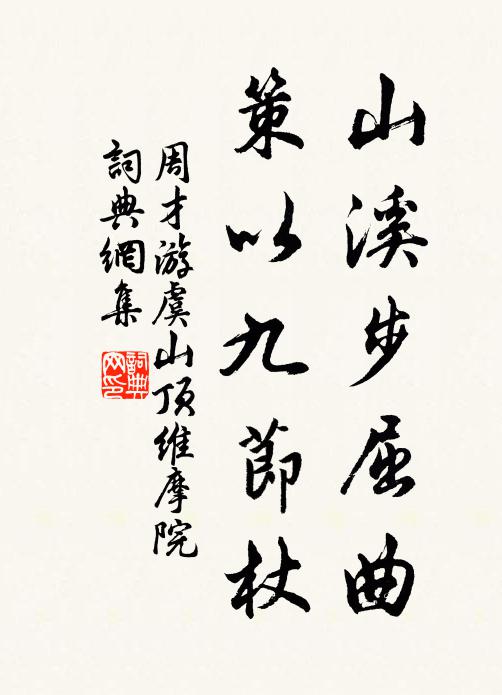 山溪步屈曲
策以九節杖
周才游虞山頂維摩院
詞典網集
詞典網印